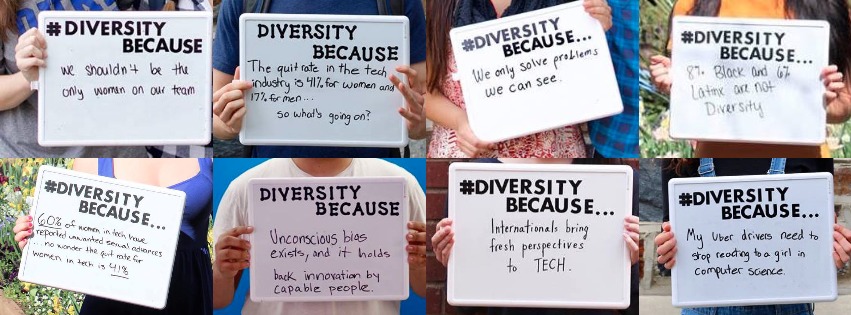 #DIVERSITY
BECAUSE
we shouldn't be the
only women on our team
DIVERSITY
BECAUSE
The quit rate in the tech
industry is 41% for women and
17% for men...
so what's going on?
#DIVERSITY
BECAUSE...
We only solve problems
we can see.
#DIVERSITY
BECAUSE...
8% Black and 6%
Latinx are not
Diversity
#DIVERSITY
BECAUSE...
60% of women in tech have
reported unwanted sexual advances
...no wonder the quit rate for
women in tech is 41%
DIVERSITY
BECAUSE
Unconscious bias
exists, and it holds
back innovation by
capable people.
#DIVERSITY
BECAUSE...
Internationals bring
fresh perspectives
to TECH.
#DIVERSITY
BECAUSE...
My Uber drivers need to
stop reacting to a girl in
computer science.